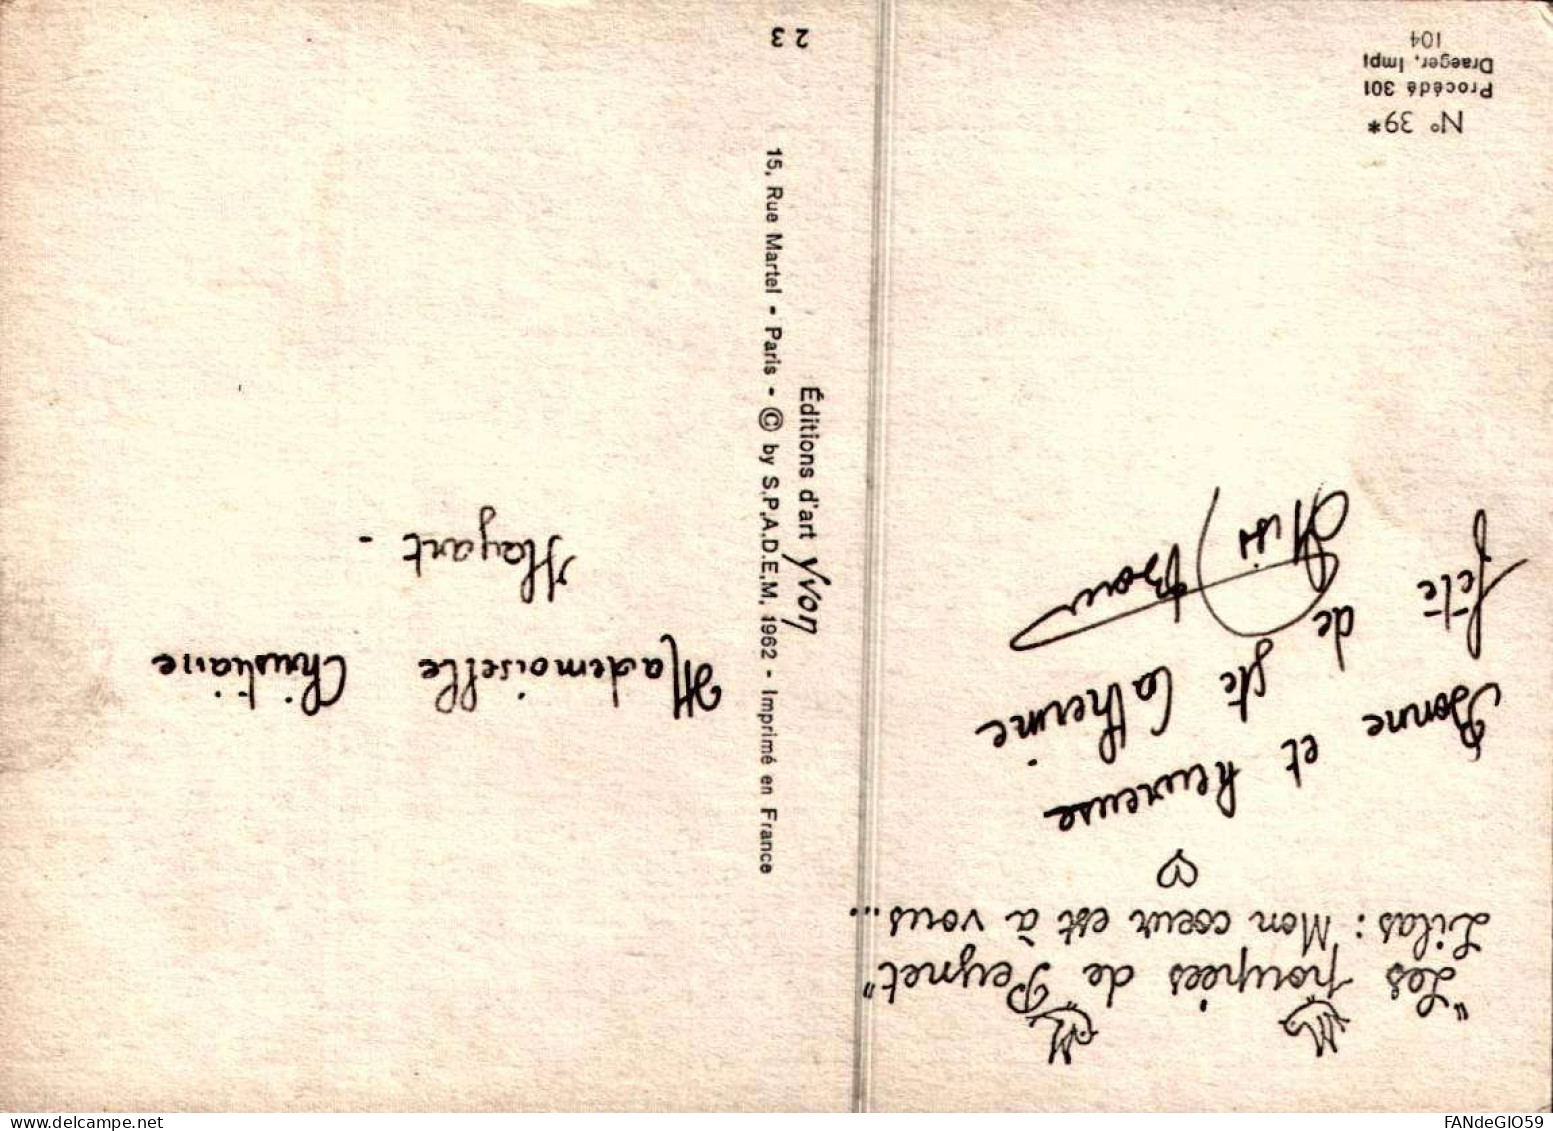 "Les poupées de Peynet"
Lilas : Mon coeur est à vous...
Bonne et heureuse
fête de Ste Catherine.
N° 39*
Procédé 301
Draeger, Impr
104
Éditions d'art Yvon
15, Rue Martel - Paris - © by S.P.A.D.E.M. 1962 - Imprimé en France
2 3
Mademoiselle Christiane
Hayart -
FANdeGIO59